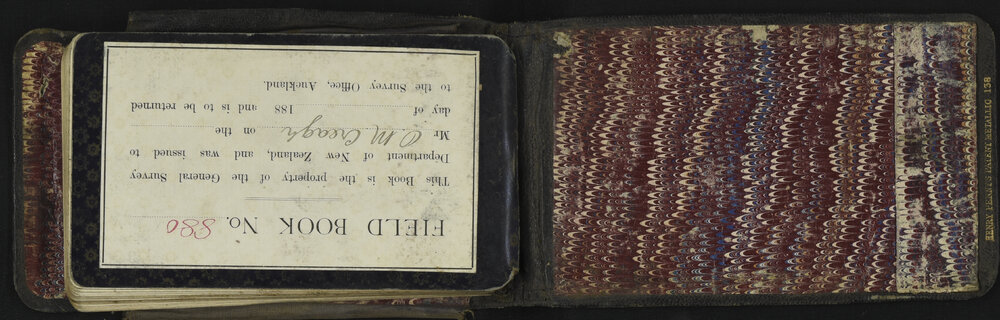 FIELD BOOK No. 880
This Book is the property of the General Survey
Department of New Zealand, and was issued to
Mr O. M. Creagh on the
day of 188 and is to be returned
to the Survey Office, Auckland.
HENRY PENNY'S PATENT METALLIC 138